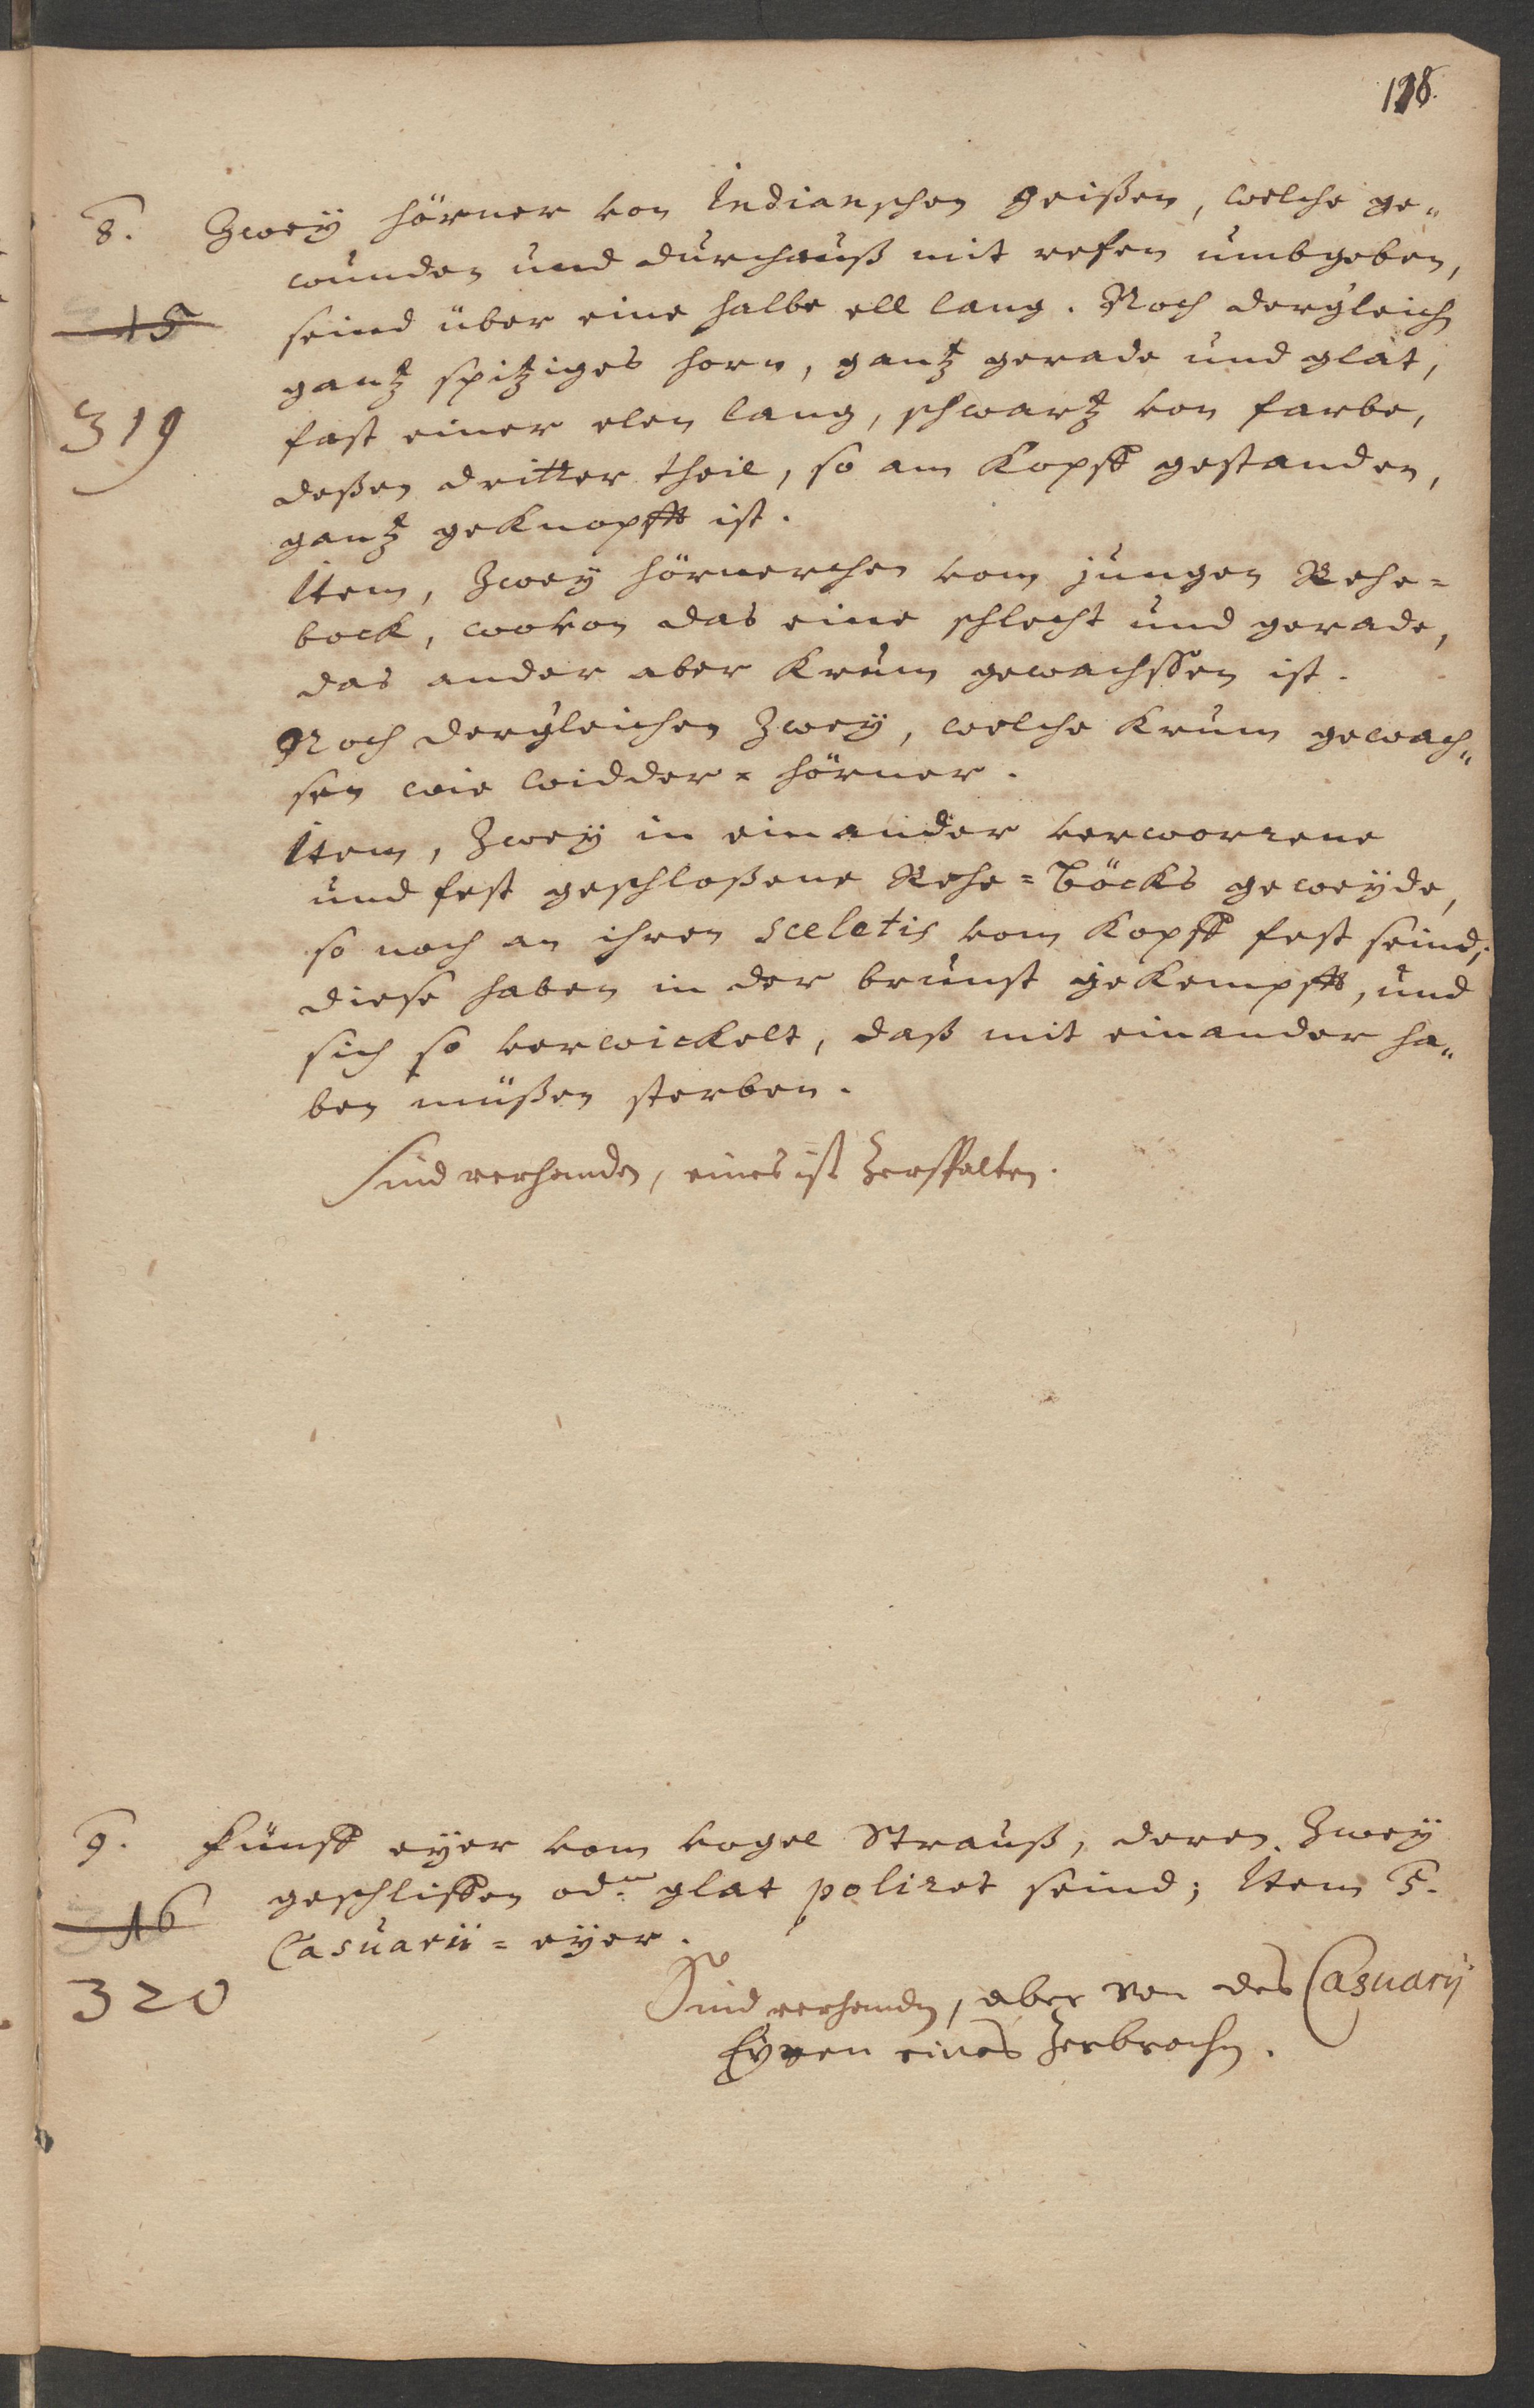 118.
8. Zweÿ hörner von Indianschen geißen, welche ge„
wunden und durchauß mit refen umbgeben,
15 seind über eine halbe ell lang. Noch dergleich
gantz spitziges horn, gantz gerade und glat,
319 fast einer elen lang, schwartz von farbe,
deßen dritter theil, so am Kopff gestanden,
gantz geknopfft ist.
Item, Zweÿ hörnerchen vom jungen Rehe=
bock, wovon das eine schlecht und gerade,
das ander aber Krum gewachssen ist.
Noch dergleichen Zweÿ, welche Krum gewach„
sen wie widder=hörner.
Item, Zweÿ in einander verworrene
und fest geschloßene Rehe=Böcks geweÿde,
so noch an ihren sceletis vom Kopff fest seind;
diese haben in der brunst gekempfft, und
sich so verwickelt, daß mit einander ha„
ben müßen sterben.
Sind verhanden, eines ist Zerspalten.
9. Fünff eÿer vom vogel Strauß, deren Zweÿ
16 geschliffen od. glat poliret seind; Item 5.
Casuarii=eÿer.
320
Sind verhanden, aber von des Casuarij
Eyren eines Zerbrochen.